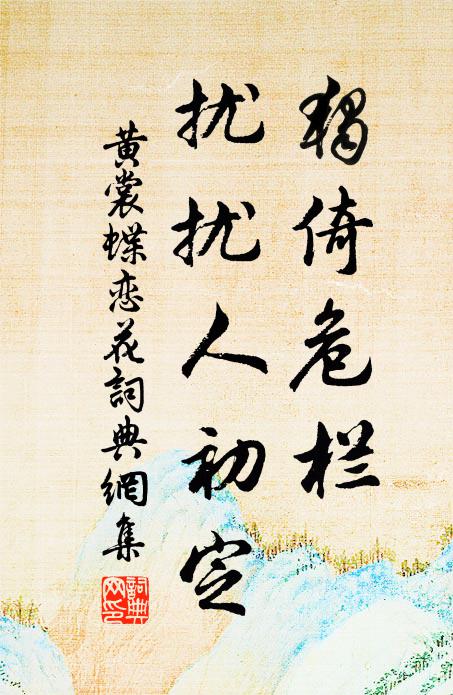 獨倚危栏
扰扰人初定
黄裳蝶恋花詞典網集
詞典
网印